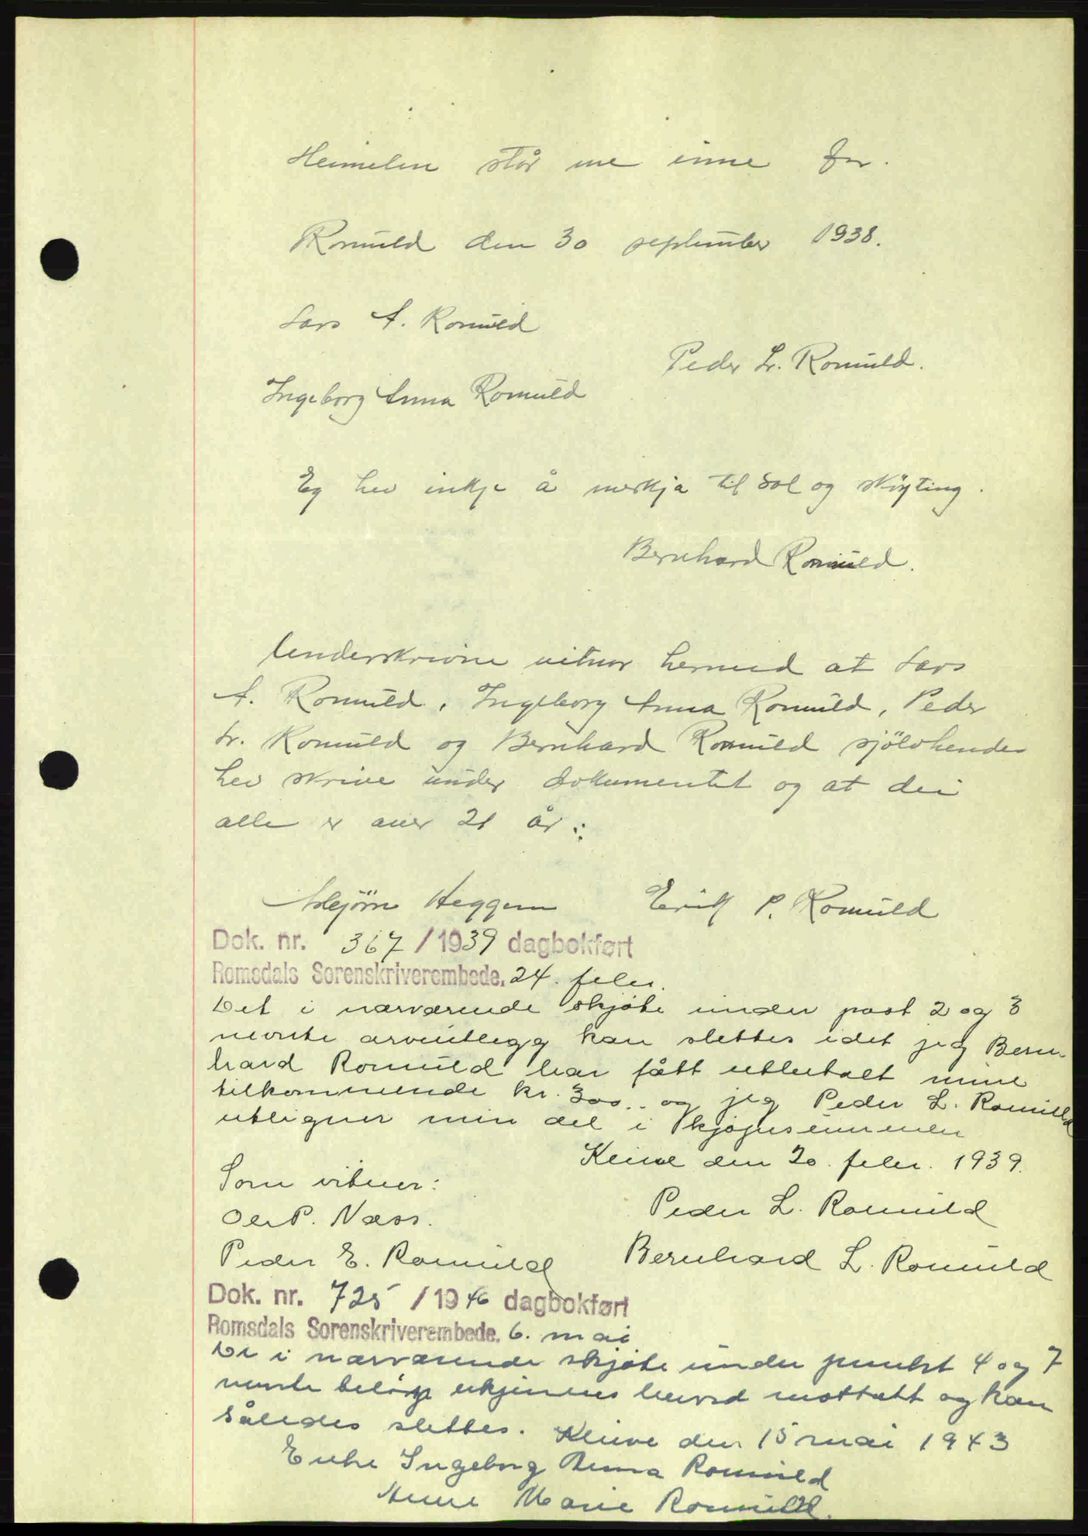 Heimelen står me inne for.
Romuld den 30 september 1938.
Lars A. Romuld
Peder L. Romuld.
Ingeborg Anna Romuld
Eg hev inkje å merkja til sol og skøyting.
Bernhard Romuld.
Underskrivne vitnar hermed at Lars
A. Romuld, Ingeborg Anna Romuld, Peder
Lr. Romuld og Bernhard Romuld sjölvhendes
hev skrive under dokumentet og at dei
alle er over 21 år:
Heggem Erik P. Romuld
Dok. nr. 367/1939 dagbokført
Romsdals Sorenskriverembede. 24. febr.
Det i nærværende skjøte under post 2 og 3
nevnte arveutlegg kan slettes idet jeg Bern-
hard Romuld har fått utbetalt mine
tilkommende kr. 300.. og jeg Peder L. Romuld
utligner min del i kjøpesummen
Kleive den 20. febr. 1939.
Som vitner:
Peder L. Romuld
Ole P. Næss.
Bernhard L. Romuld
Peder E. Romuld
Dok. nr. 725/1946 dagbokført
Romsdals Sorenskriverembede. 6. mai
De i nærværende skjøte under punkt 4 og 7
nevnte beløp erkjennes herved mottatt og kan
således slettes. Kleive den 15 mai 1943
Enke Ingeborg Anna Romuld
Anne Marie Romuld.